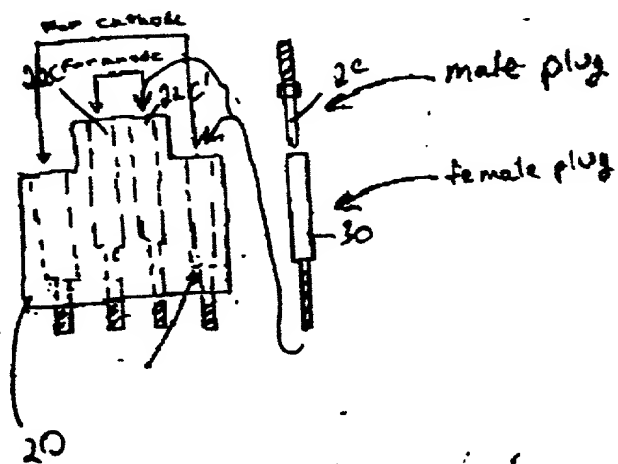 For cathode
For anode
22c'
2c
male plug
female plug
30
20